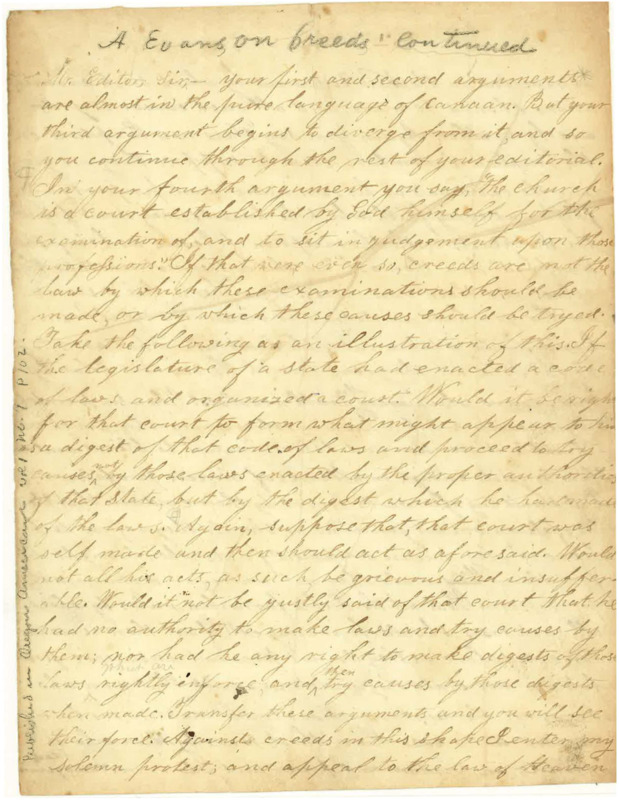 A Evans, on Creeds" continued
Mr. Editor, Sir,— your first and second arguments
are almost in the pure language of Canaan. But your
third argument begins to diverge from it, and so
you continue through the rest of your editorial.
In your fourth argument you say, "The church
is a court established by God himself for the
examination of, and to sit in judgement upon those
professions." If that were even so, creeds are not the
law by which these examinations should be
made, or by which these causes should be tryed.
Take the following as an illustration of this. If
the legislature of a state had enacted a code
of laws and organized a court. Would it be right
for that court to form what might appear to him
a digest of that code of laws and proceed to try
causes, not by those laws enacted by the proper authorities
of that State, but by the digest which he had made
of the laws. Again, suppose that, that court was
self made and then should act as aforesaid. Would
not all his acts, as such be grievous and insuffer-
able. Would it not be justly said of that court that he
had no authority to make laws and try causes by
them; nor had he any right to make digests of those
laws rightly enforce, and then try causes by those digests
when made. Transfer these arguments and you will see
their force. Against creeds in this shape I enter my
solemn protest; and appeal to the law of Heaven
Published in Oregon American Vol 1 No. 7 P 102.